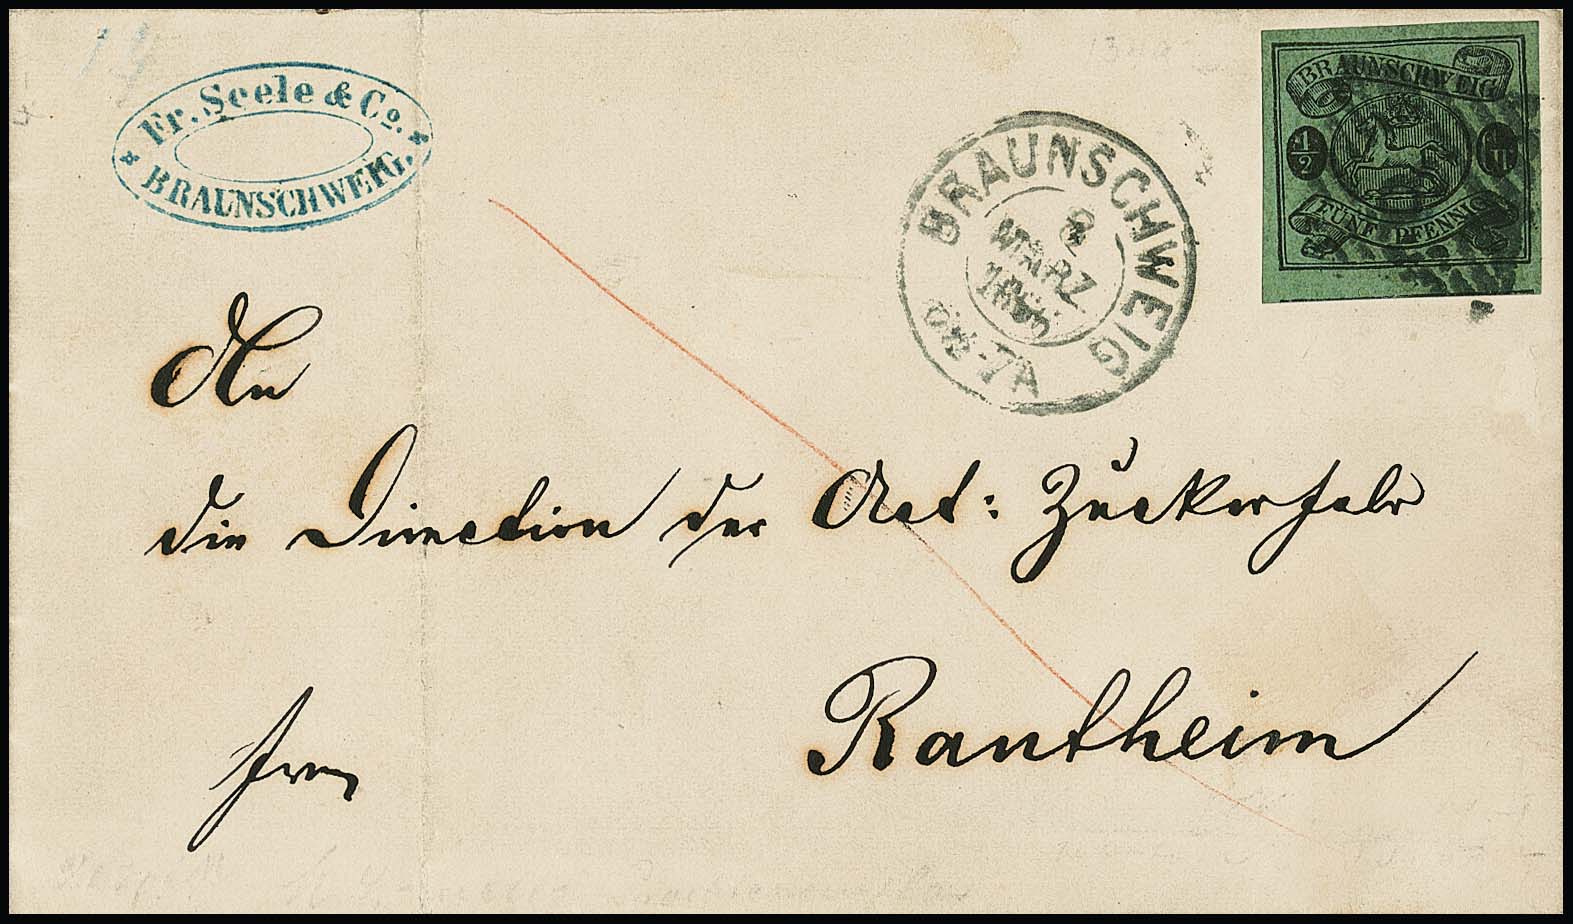 Fr. Seele & Co.
BRAUNSCHWEIG.
BRAUNSCHWEIG
8
MÄRZ
1865
6½-7A
BRAUNSCHWEIG
1/2
FÜNF PFENNIG
An
die Direction der Act: Zuckerfabr
Rautheim
frei